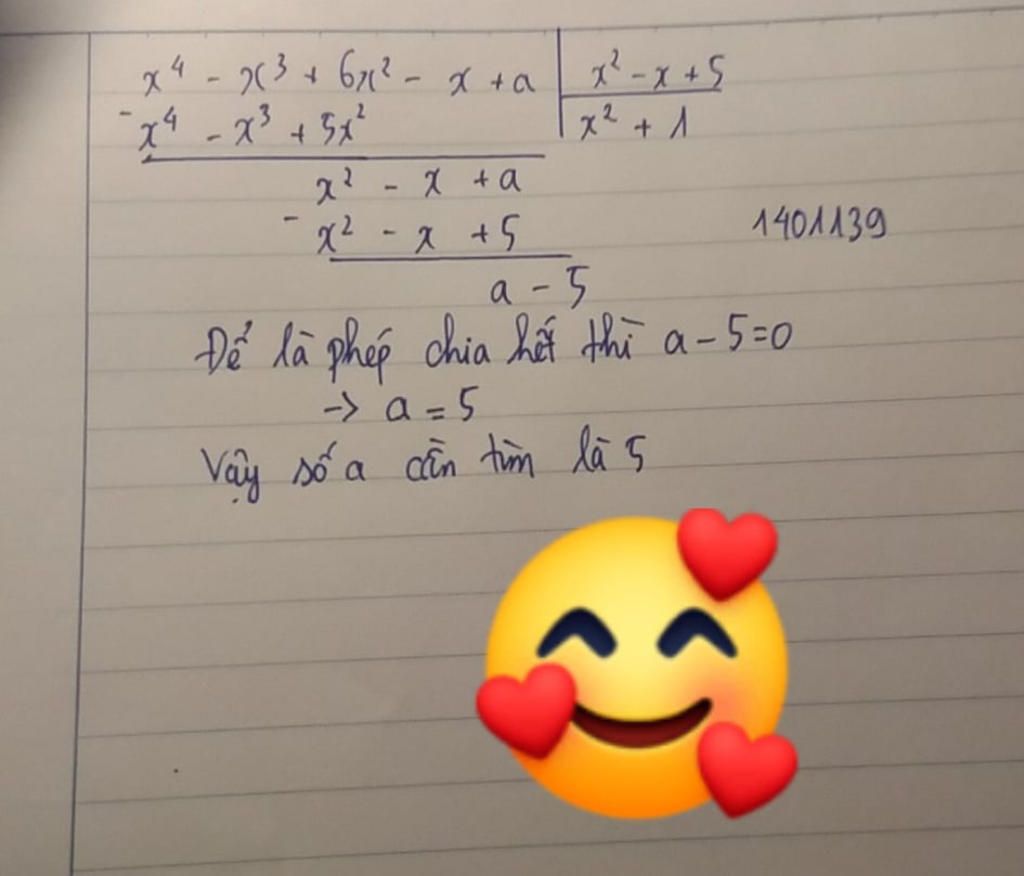 x⁴ - x³ + 6x² - x + a | x² - x + 5
- x⁴ - x³ + 5x² | x² + 1
x² - x + a
- x² - x + 5
1401139
a - 5
Để là phép chia hết thì a - 5 = 0
-> a = 5
Vậy số a cần tìm là 5